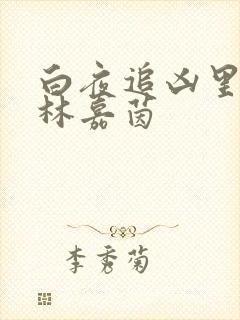 白夜追凶里
林嘉茵
李秀菊